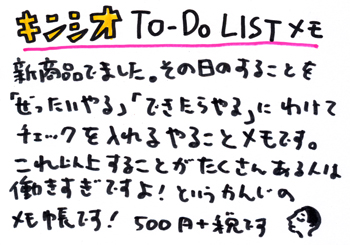 キンジオ TO-DO LISTメモ
新商品でました。その日のすることを
「ぜったいやる」「できたらやる」にわけて
チェックを入れるやることメモです。
これ以上することがたくさんある人は
働きすぎですよ！というかんじの
メモ帳です！ 500円+税です